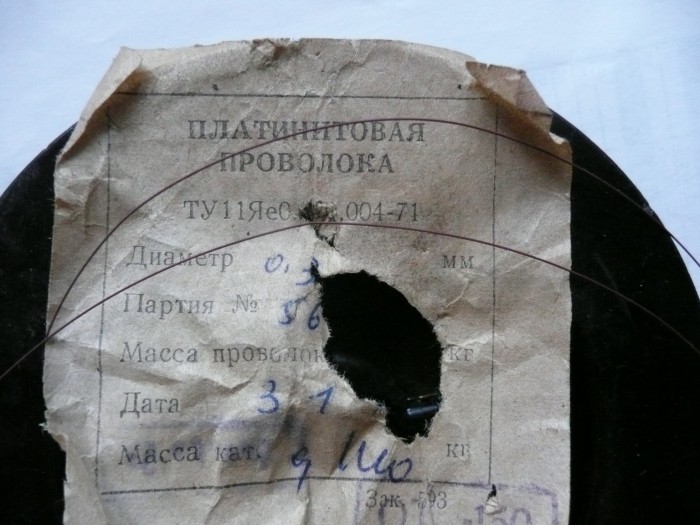 ПЛАТИНИТОВАЯ
ПРОВОЛОКА
ТУ11Яе0. .004-71
Диаметр 0.3 мм
Партия № 56
Масса проволок кг
Дата 3 1
Масса кат. кг
Зак. 593